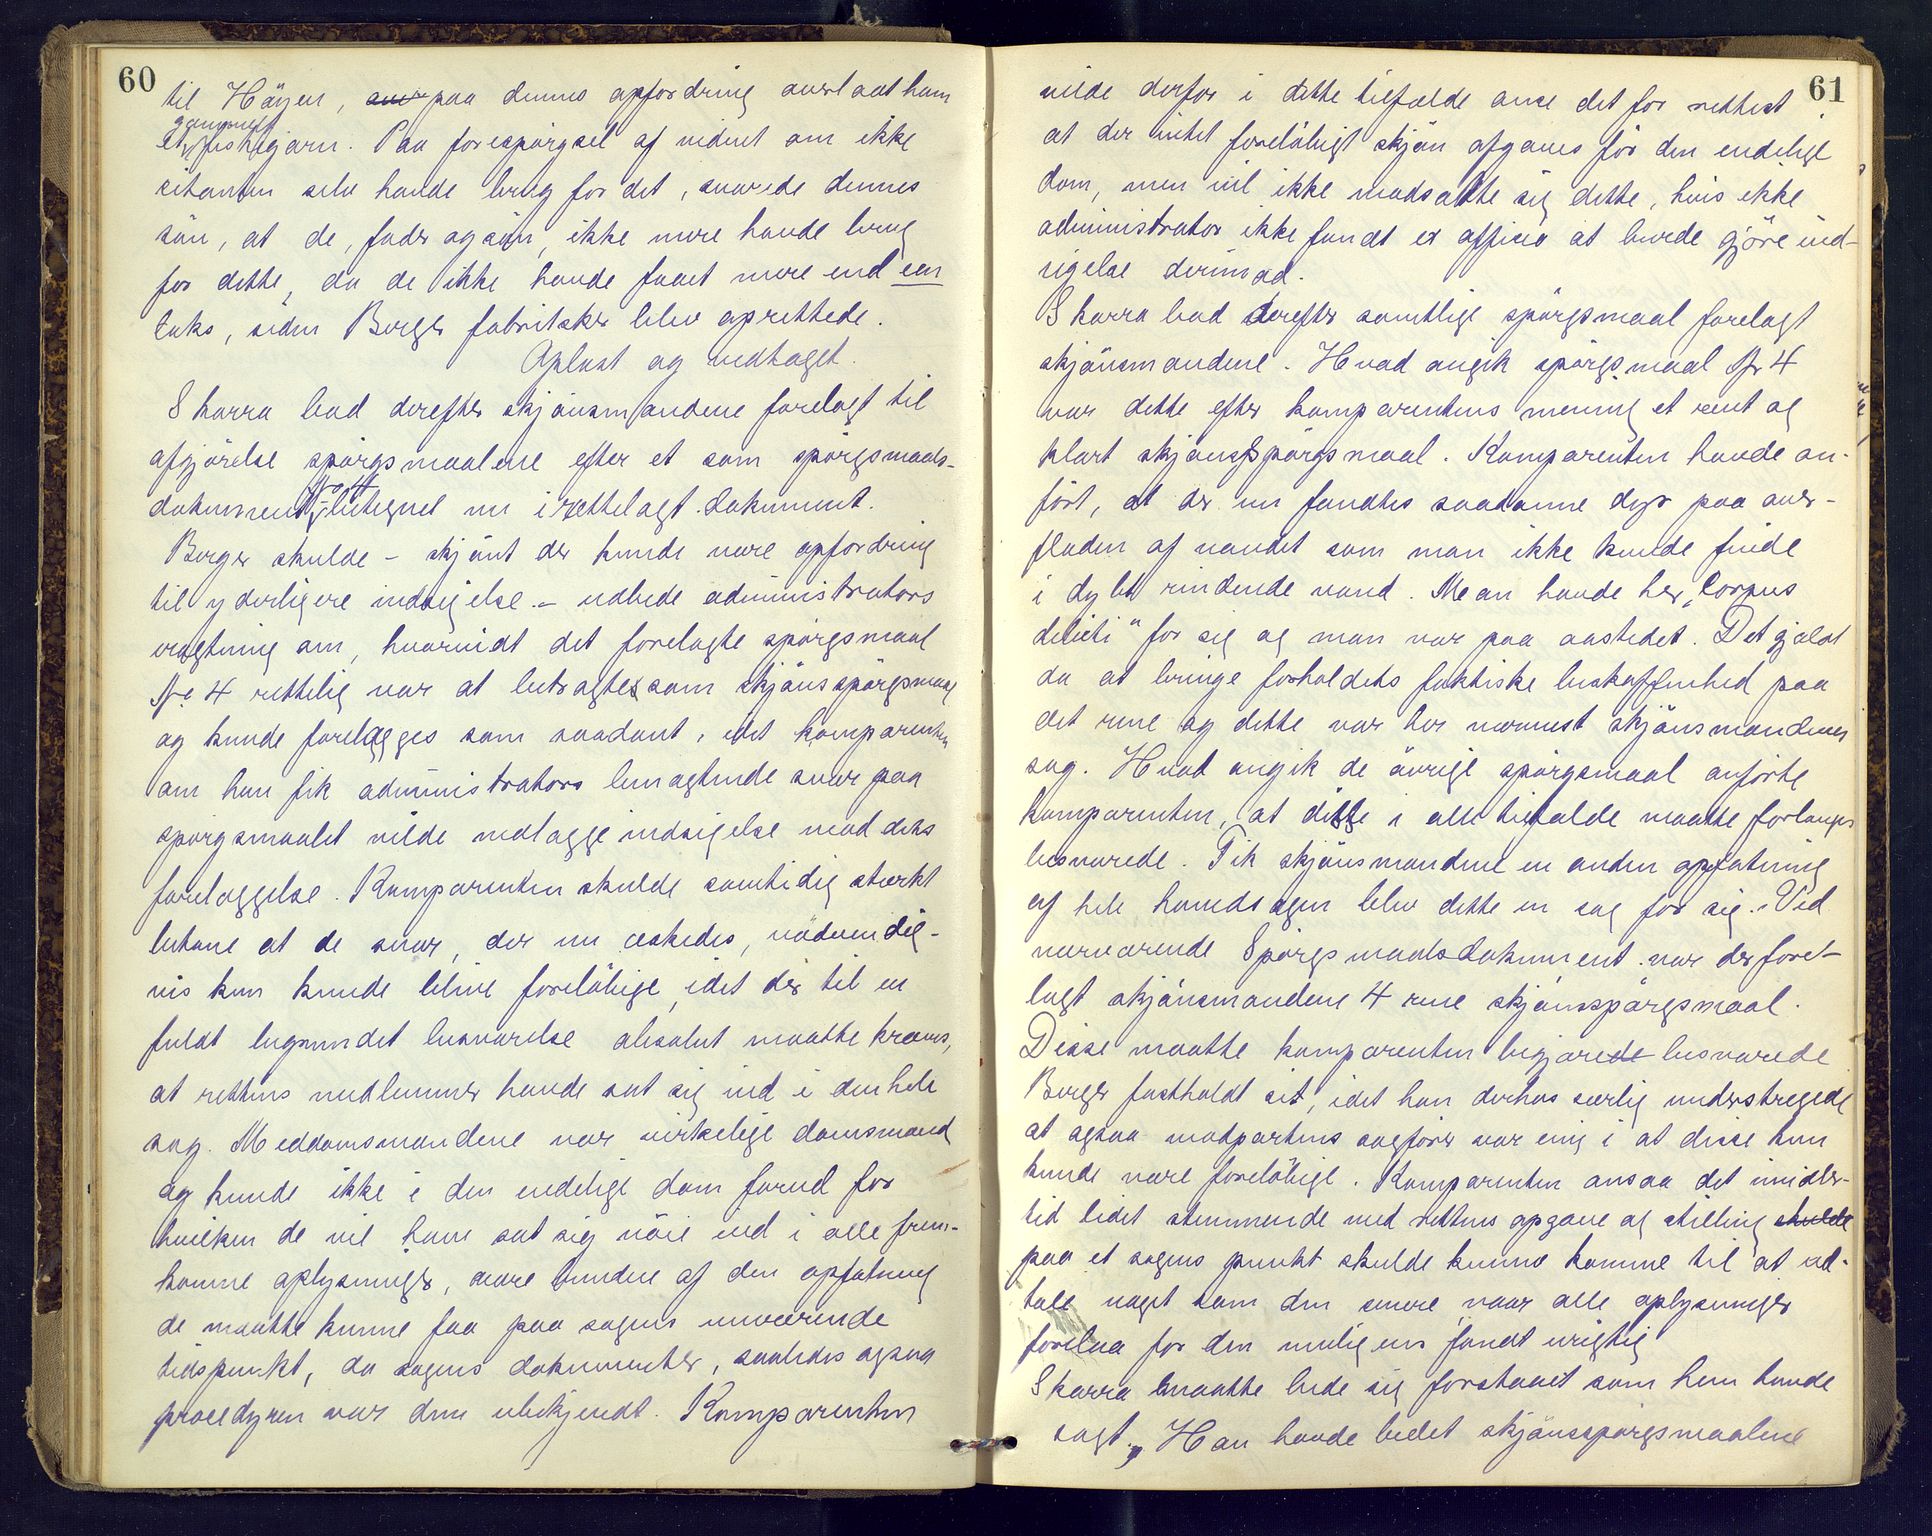 60
til Höyen, paa dennes opfordring overlaat ham
et gammelt fiskegarn. Paa forespörgsel af vidnet om ikke
citanten selv havde brug for det, svarede dennes
sön, at de, fader og sön, ikke mere havde brug
for dette, da de ikke havde faaet mere end een
laks, siden Borges fabrikker blev oprettede.
Oplæst og vedtaget.
Skarra bad derefter skjönsmændene forelagt til
afgjörelse spörgsmaalene efter et som spörgsmaals-
dokument No 4 betegnet nu i rettelagt dokument.
Berger skulde – skjönt der kunde være opfordring
til yderligere indsigelse – udbede administrators
ergtning om, hvorvidt det forelagte spörgsmaal
No 4 rettelig var at betragtes som skjönsspörgsmaal
og kunde forelægges som saadant, idet komparenten
om han fik administrators benægtende svar paa
spörgsmaalet vilde nedlægge indsigelse mod dets
foreläggelse. Komparenten skulde samtidig stærkt
betone at de svar, der nu æskedes, nödvendig-
vis kun kunde blive forelöbige, idet der til en
fuldt begrundet besvarelse absolut maatte kræves,
at rettens medlemmer havde sat sig ind i den hele
sag. Meddomsmændene var virkelige domsmænd
og kunde ikke i den endelige dom forud for
hvilken de vil have sat sig nöie ind i alle frem-
komne oplysninger, være bundne af den opfatning
de maatte kunne faa paa sagens nuværende
tidspunkt, da sagens dokumenter, saaledes ogsaa
procedyren var dem ubekjendt. Komparenten
61
vilde derfor i dette tilfælde anse det for rettest
at der intet forelöbigt skjön afgaves för den endelige
dom, men vil ikke modsætte sig dette, hvis ikke
administrator ikke fandt ex officio at burde gjöre ind-
sigelse derimod.
Skarra bad derefter samtlige spörgsmaal forelagt
skjönsmændene. Hvad angik spörgsmaal No 4
var dette efter komparentens mening et rent og
klart skjönsspörgsmaal. Komparenten havde an-
fört, at der nu fandtes saadanne dyr paa over-
fladen af vandet som man ikke kunde finde
i dybt rindende vand. Man havde her „corpus
delicti“ for sig og man var paa aastedet. Det gjaldt
da at bringe forholdets faktiske beskaffenhed paa
det rene og dette var her nærmest skjönsmændenes
sag. Hvad angik de övrige spörgsmaal anförte
komparenten, at disse i alle tilfælde maatte forlanges
besvarede. Fik skjönsmændene en anden opfatning
af hele hovedsagen blev dette en sag for sig. Ved
nærværende Spörgsmaalsdokument var der fore-
lagt skjönsmændene 4 rene skjönsspörgsmaal.
Disse maatte komparenten begjære besvarede
Berger fastholdt sit, idet han derhos særlig understregede
at ogsaa modpartens sagförer var enig i at disse kun
kunde være forelöbige. Komparenten ansaa det imidler-
tid lidet stemmende med rettens opgave og stilling skulde
paa et sagens punkt skulde kunne komme til at ud-
tale noget som den senere, naar alle oplysninger
forelaa for den muligens fandt urigtig
Skarra maatte bede sig forstaaet som han havde
sagt. „Han havde bedet skjönsspörgsmaalene